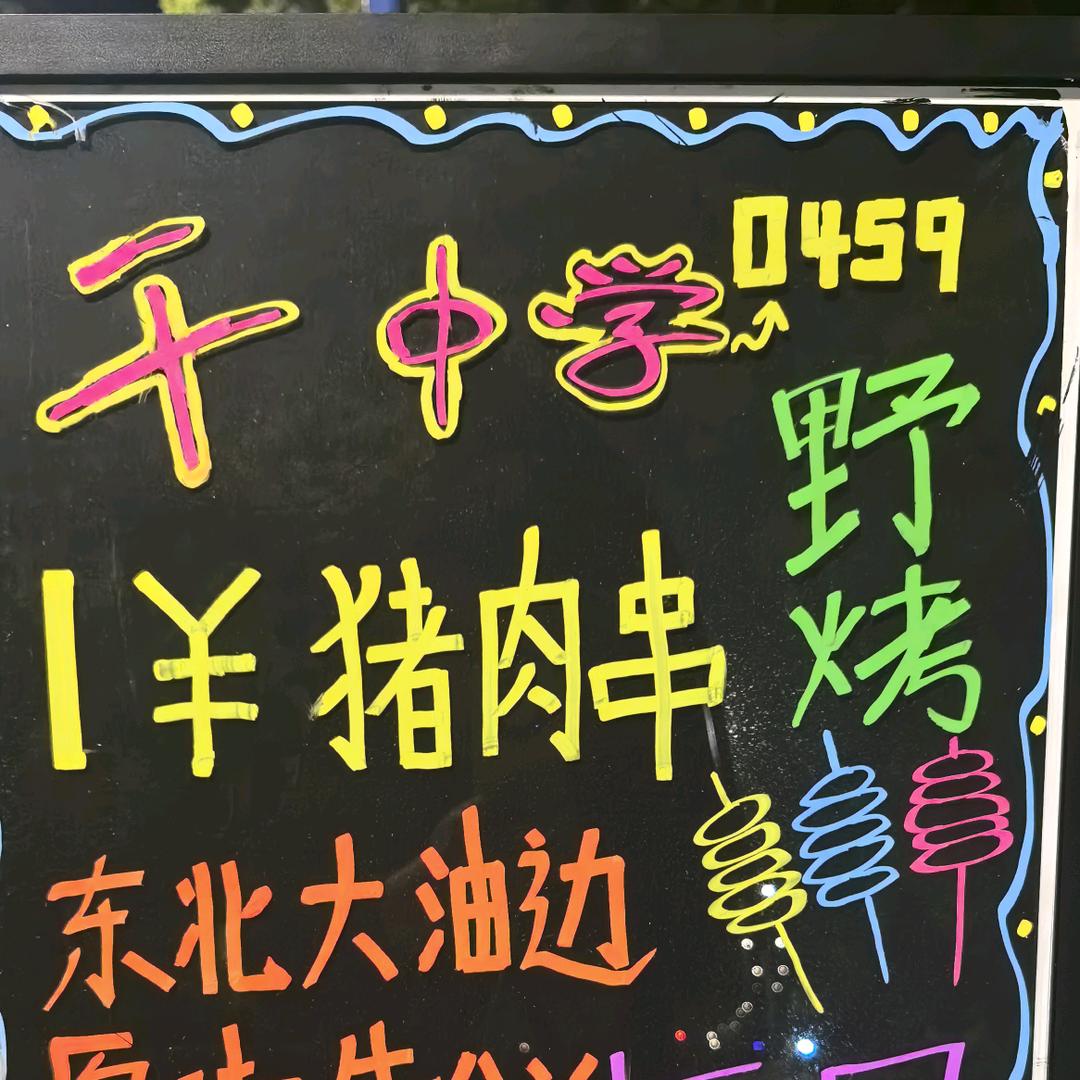 干中学 0459
野烤
1¥猪肉串
东北大油边